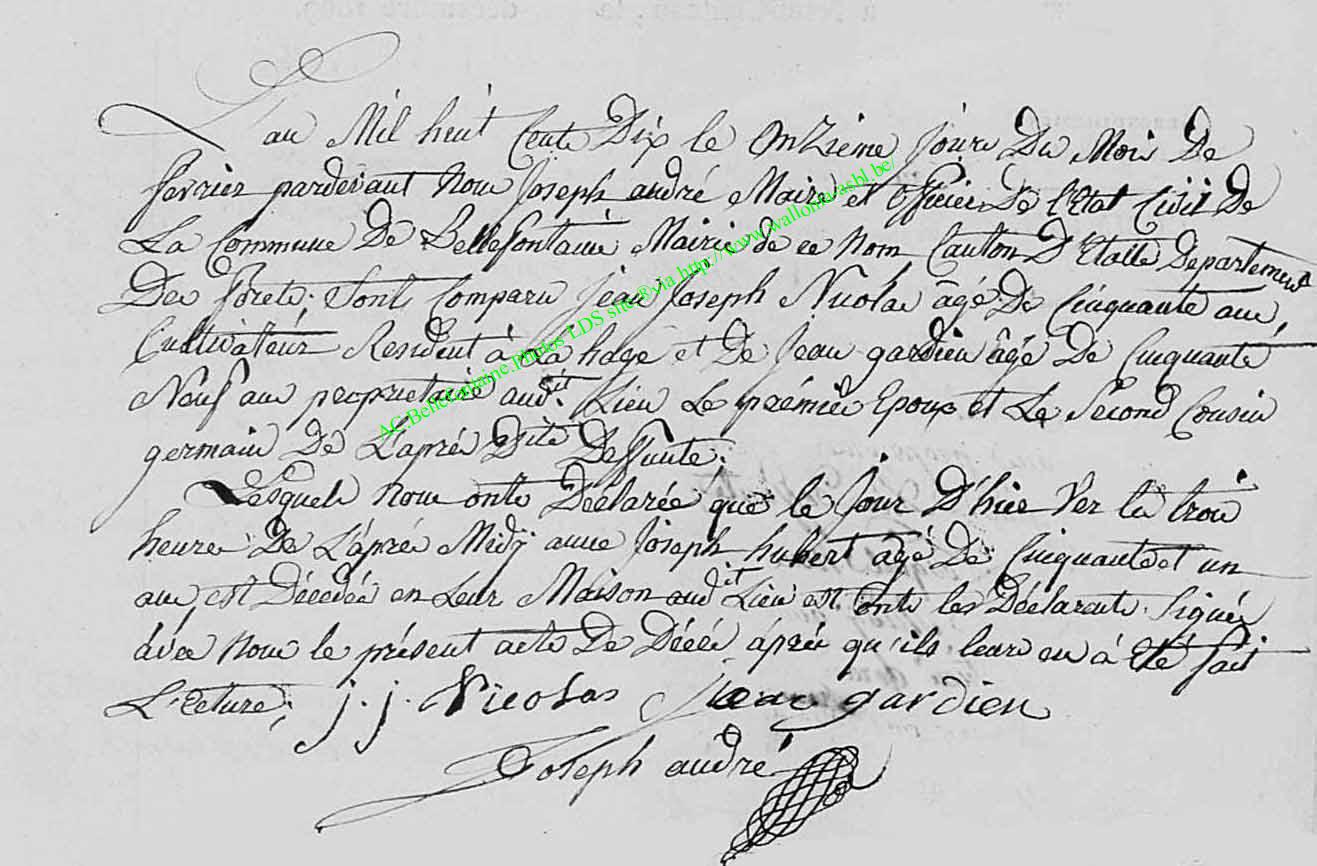 L'an Mil huit Cent Dix le Onzieme Jour Du Mois De
fevrier pardevant Nous Joseph andré Maire et officier De l'Etat Civil De
La Commune De Bellefontaine Mairie de ce Nom Canton D'Etalle Departement
Des forets. Sont Comparu Jean Joseph Nicolas âgé De Cinquante ans,
Cultivateur Resident à La hage et De Jean gardien âgé De Cinquante
Neuf ans propriétaire audit Lieu Le prémier Epoux et Le Second Cousin
germain De L'aprés Dite Deffunte.
Lesquels Nous onts Déclarée que le Jour D'hier Ver les trois
heures De L'aprés Midy anne Joseph hubert agé De Cinquante et un
ans, est Décedée en Leur Maison audit Lieu est onts les Déclarants Signés
avec Nous le présent acte De Décés áprés qu'ils leur en à Eté fait
L'ecture; j. j. Nicolas Jean gardien
Joseph andré
AC.Bellefontaine.Photos LDS site® via http://www.wallonia-asbl.be/